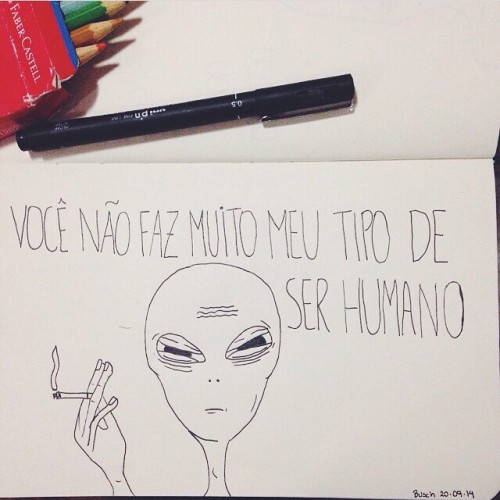 FABER-CASTELL
0.5
uni pin
VOCÊ NÃO FAZ MUITO MEU TIPO DE
SER HUMANO
Busch 20.09.14